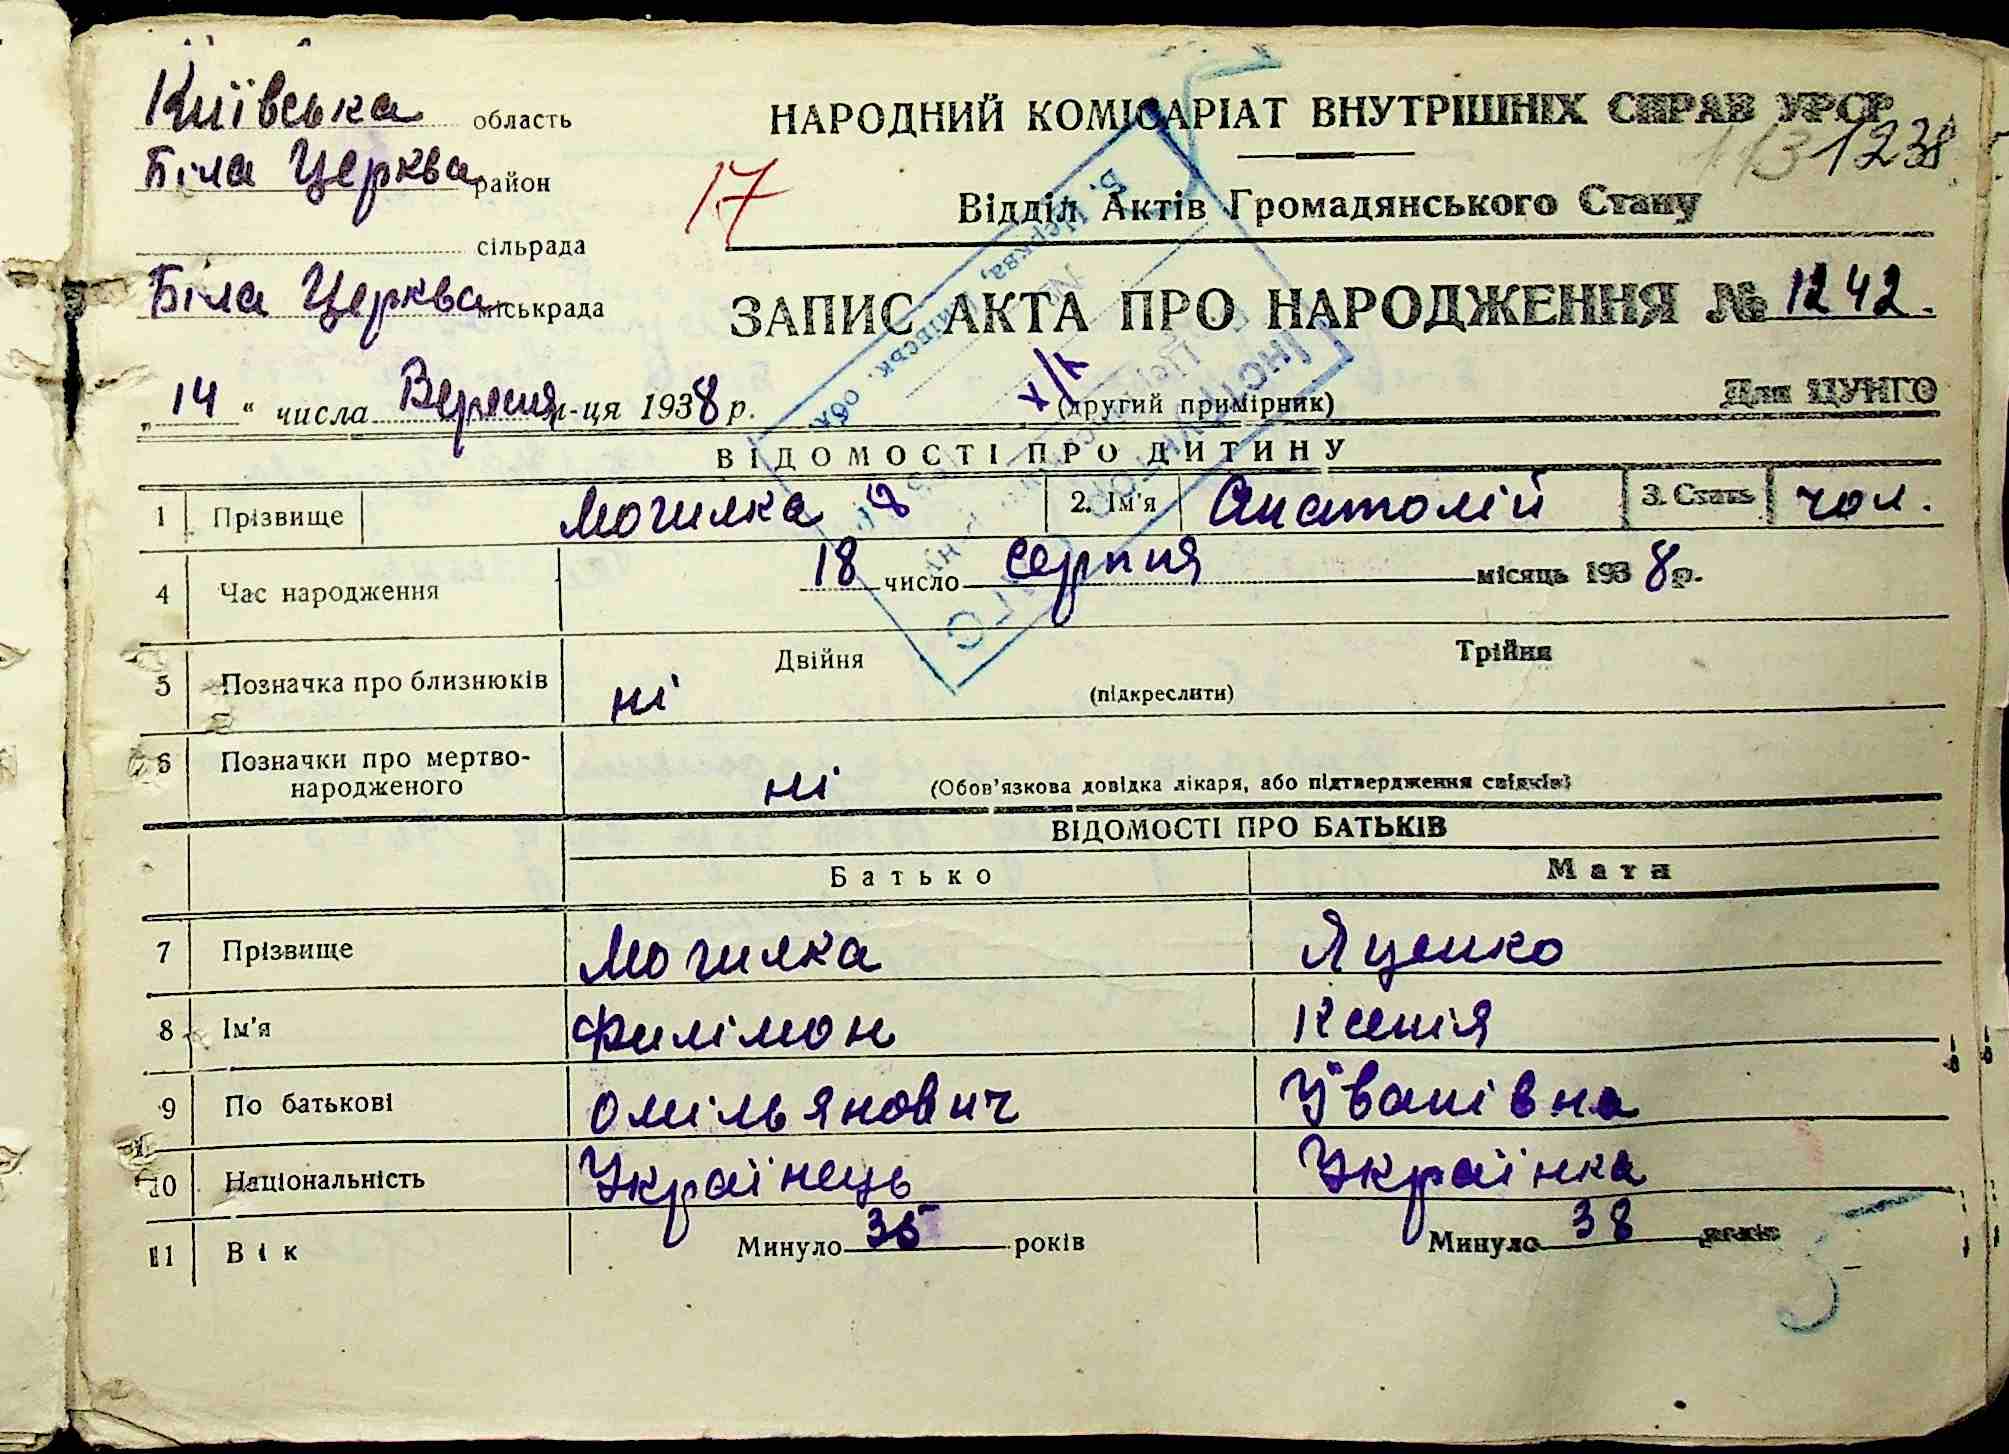 Київська область
НАРОДНИЙ КОМІСАРІАТ ВНУТРІШНІХ СПРАВ УРСР
Біла Церква район
17
1238
Відділ Актів Громадянського Стану
сільрада
Біла Церква міськрада
ЗАПИС АКТА ПРО НАРОДЖЕННЯ № 1242.
„14“ числа Вересня м-ця 1938 р.
(другий примірник)
Для ЦУНГО
ВІДОМОСТІ ПРО ДИТИНУ
1 Прізвище Могилка 2. Ім'я Анатолій 3. Стать чол.
4 Час народження 18 число серпня місяць 1938 р.
5 Позначка про близнюків ні Двійня Трійня
(підкреслити)
6 Позначки про мертво-
народженого ні (Обов'язкова довідка лікаря, або підтвердження свідків)
ВІДОМОСТІ ПРО БАТЬКІВ
Батько Мати
7 Прізвище Могилка Яценко
8 Ім'я Филімон Ксенія
9 По батькові Омільянович Ўванівна
10 Національність Українець Українка
11 Вік Минуло 35 років Минуло 38 років